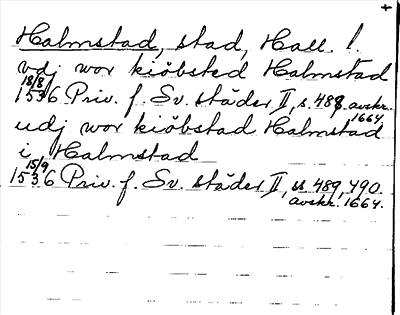 Halmstad, stad, Hall. l.
vdj wor kiöbsted Halmstad
18/8 1536 Priv. f. Sv. städer II, s. 488. avskr. 1664.
udj wor kiöbstad Halmstad
i Halmstad
15/9 1536 Priv. f. Sv. städer II, ss 489, 490. avskr. 1664.